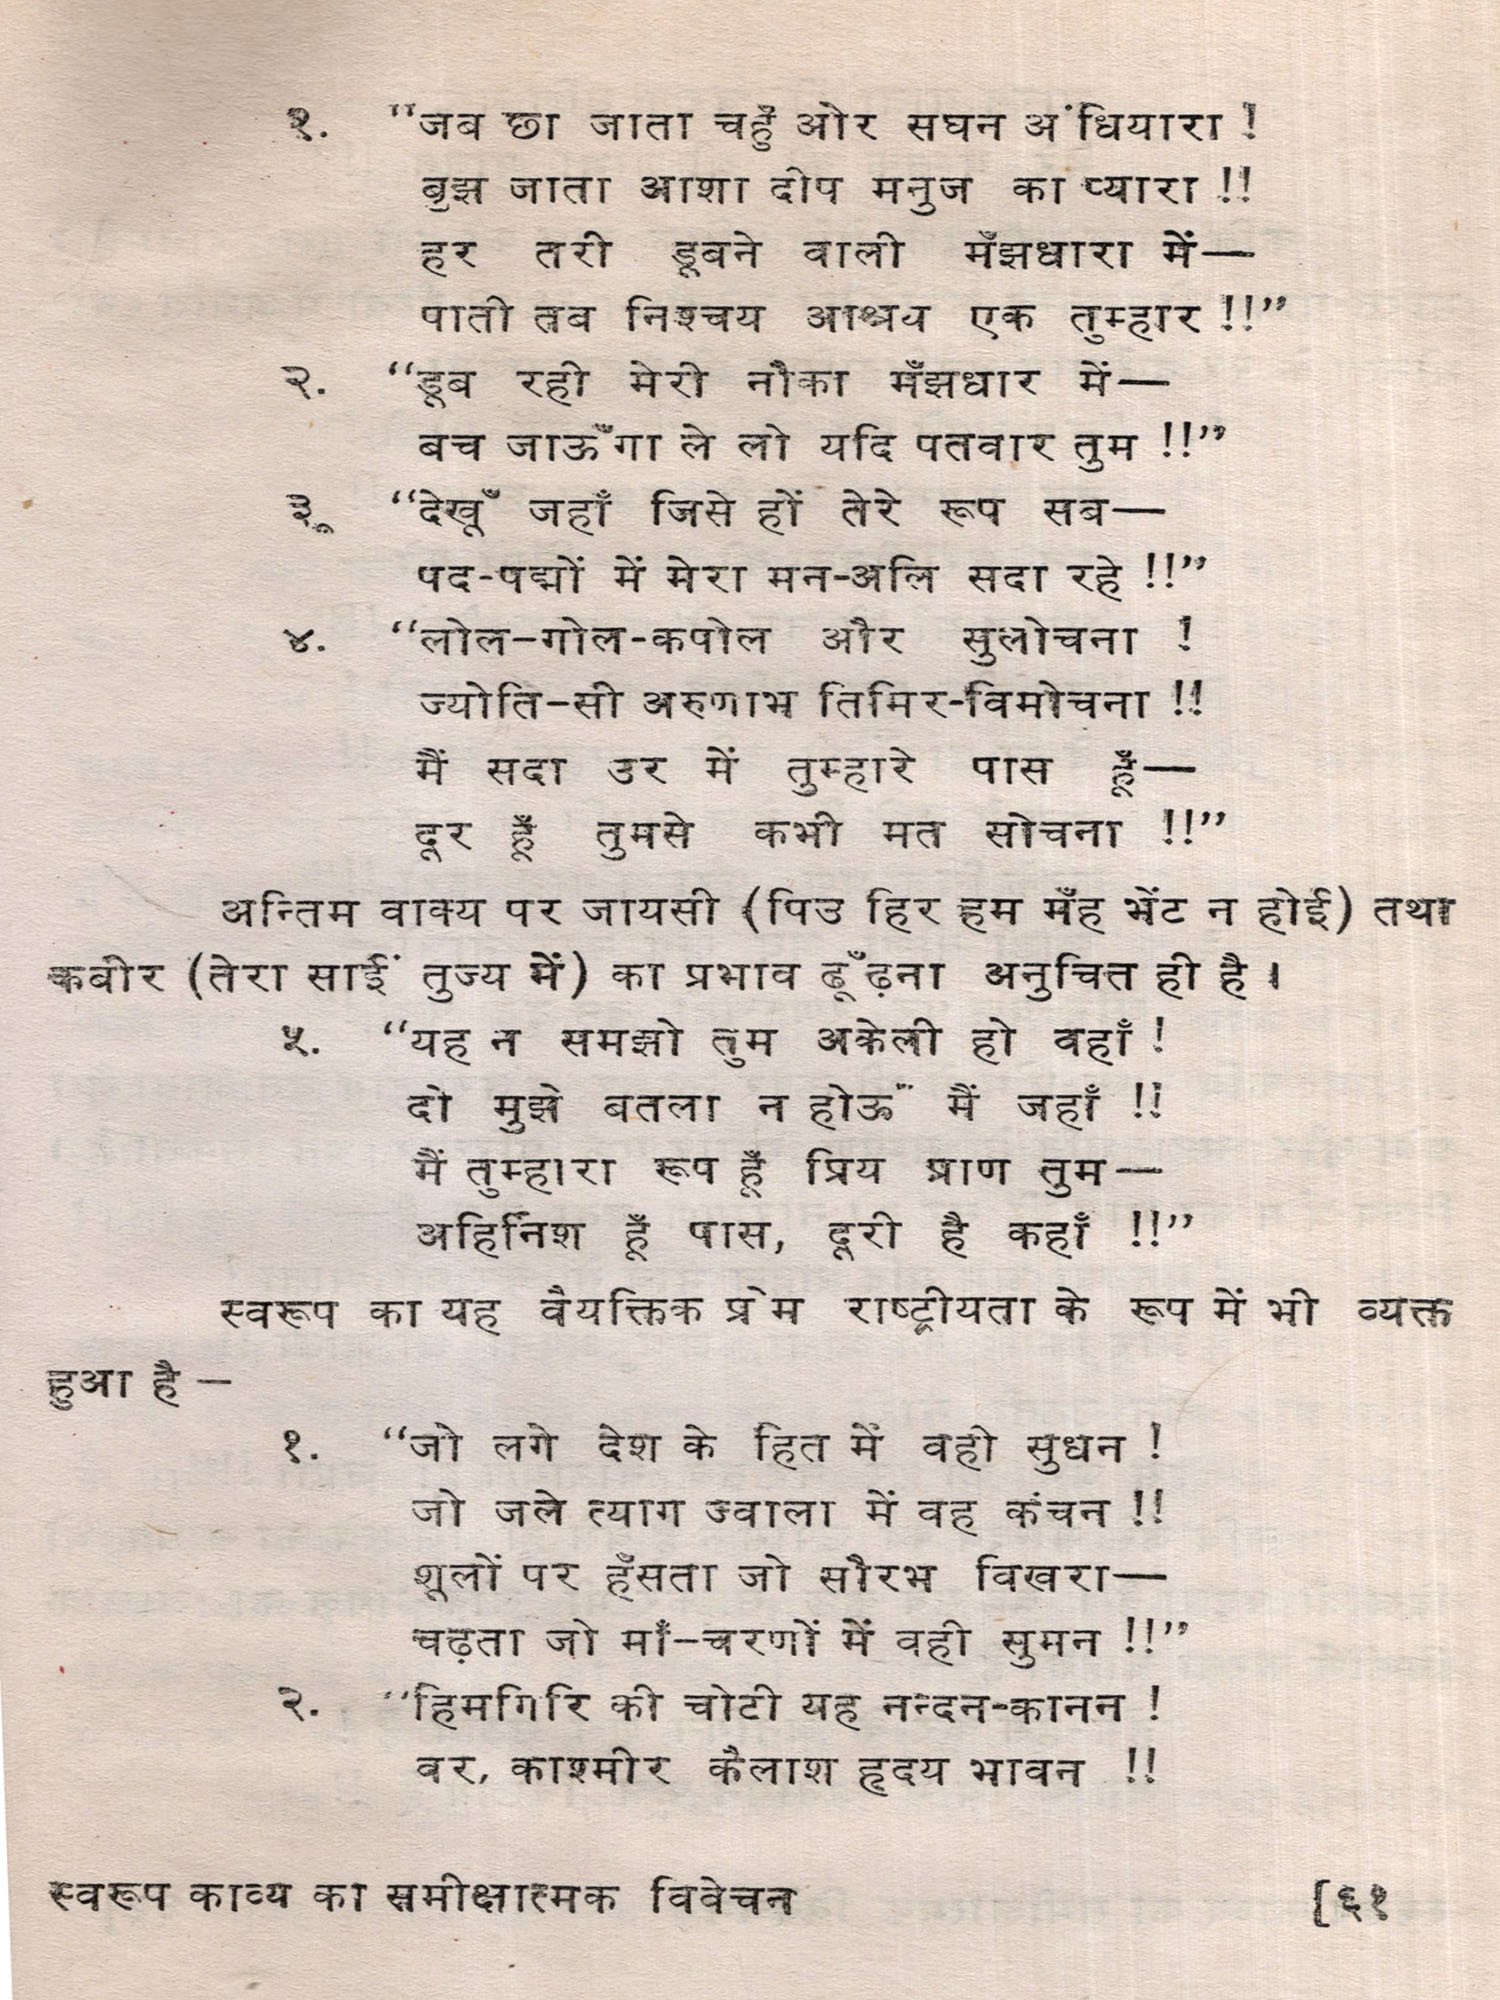 १. "जब छा जाता चहुँ ओर सघन अंधियारा !
बुझ जाता आशा दीप मनुज का प्यारा !!
हर तरी डूबने वाली मँझधारा में—
पाती तब निश्चय आश्रय एक तुम्हार !!"
२. "डूब रही मेरी नौका मँझधार में—
बच जाऊँगा ले लो यदि पतवार तुम !!"
३. "देखूँ जहाँ जिसे हों तेरे रूप सब—
पद-पद्मों में मेरा मन-अलि सदा रहे !!"
४. "लोल-गोल-कपोल और सुलोचना !
ज्योति-सी अरुणाभ तिमिर-विमोचना !!
मैं सदा उर में तुम्हारे पास हूँ—
दूर हूँ तुमसे कभी मत सोचना !!"
अन्तिम वाक्य पर जायसी (पिउ हिर हम मँह भेंट न होई) तथा
कबीर (तेरा साईं तुज्य में) का प्रभाव ढूँढ़ना अनुचित ही है।
५. "यह न समझो तुम अकेली हो वहाँ !
दो मुझे बतला न होऊँ मैं जहाँ !!
मैं तुम्हारा रूप हूँ प्रिय प्राण तुम—
अहिर्निश हूँ पास, दूरी है कहाँ !!"
स्वरूप का यह वैयक्तिक प्रेम राष्ट्रीयता के रूप में भी व्यक्त
हुआ है —
१. "जो लगे देश के हित में वही सुधन !
जो जले त्याग ज्वाला में वह कंचन !!
शूलों पर हँसता जो सौरभ विखरा—
चढ़ता जो माँ-चरणों में वही सुमन !!"
२. "हिमगिरि की चोटी यह नन्दन-कानन !
वर, काश्मीर कैलाश हृदय भावन !!
स्वरूप काव्य का समीक्षात्मक विवेचन [६१